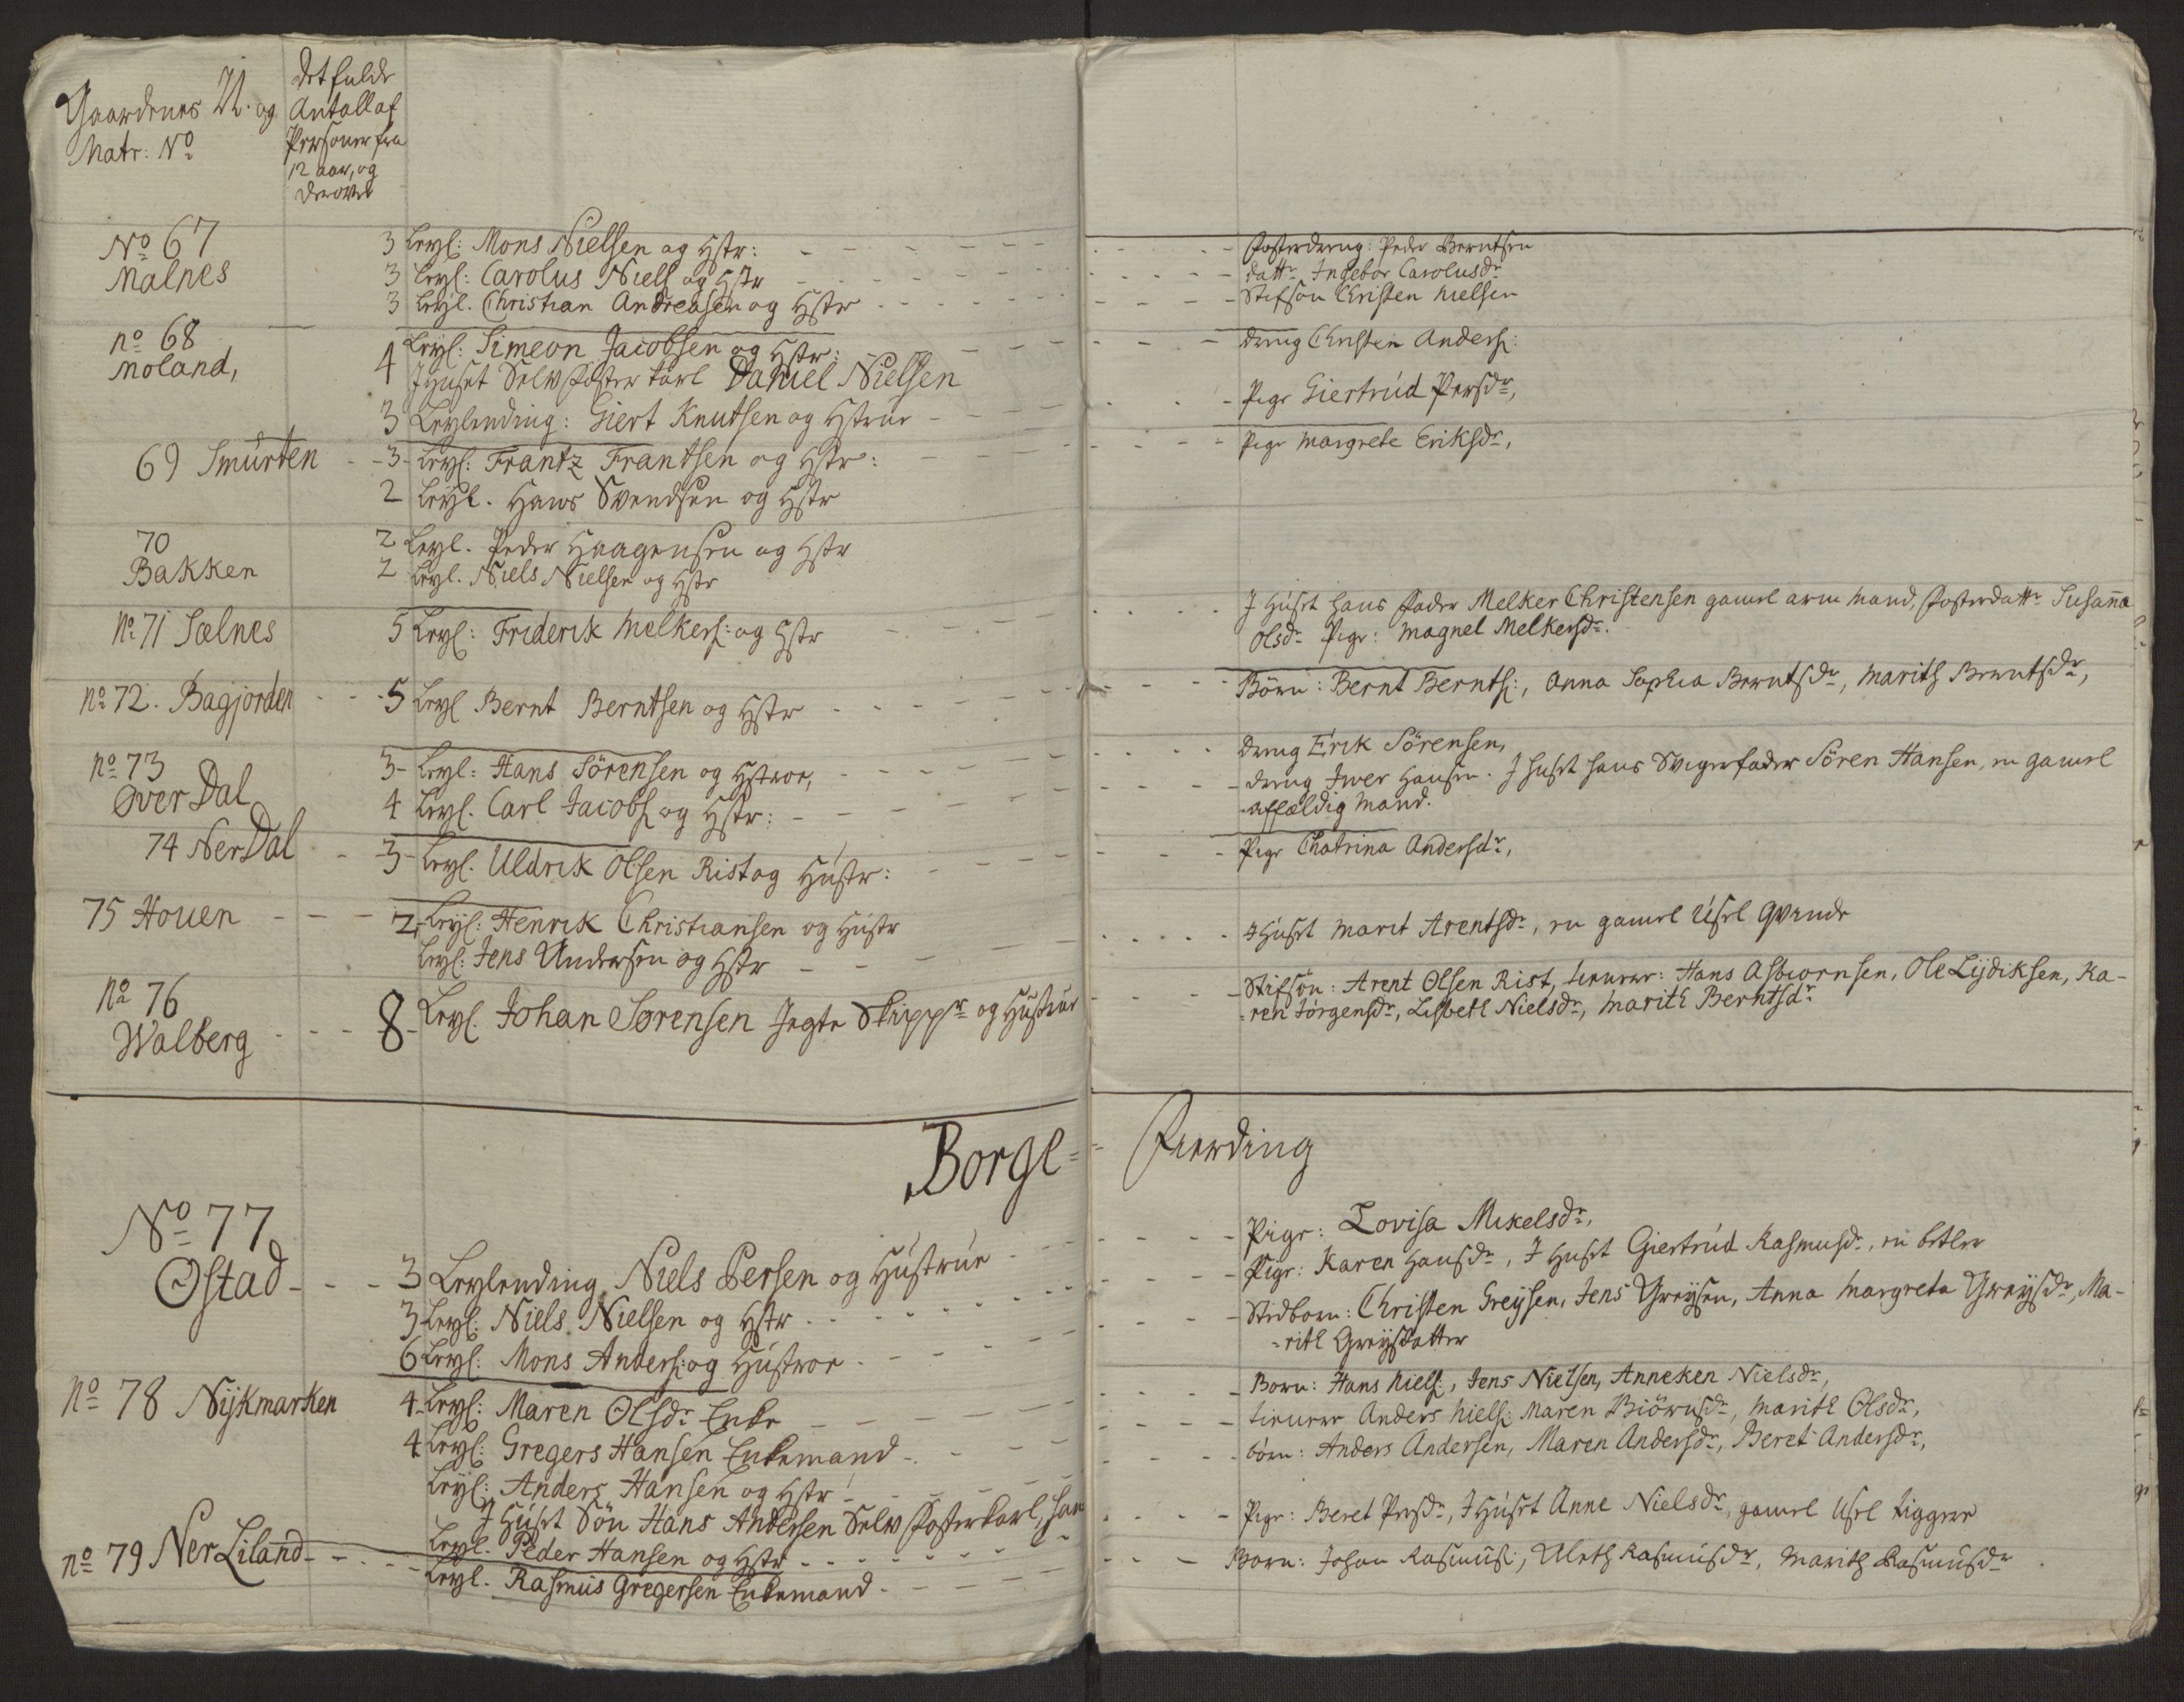 Gaardenes N. og
Matr: No
Det fulde
Antall af
Personer fra
12 aar, og
derover
No 67
Malnes
3 Leyl: Mons Nielsen og Hstr: - - - Fosterdreng: Peder Berntsen
3 Leyl: Carolus Niels og Hstr - - - datr Ingebor Carolusdr
3 Leyl. Christian Andreasen og Hstr - - - Stifsøn Christen Nielsen
no 68
Moland,
4 Leyl: Simeon Jacobsen og Hstr: - - - dreng Christen Anders:
I Huset Selv foster karl Daniel Nielsen
3 Leylending: Giert Knutsen og Hstrue - - - Pige Giertrud Persdr,
69 Smurten - 3 - Leyl: Frantz Frantsen og Hstr: - - - Pige Margrete Eriksdr,
2 Leyl. Hans Svendsen og Hstr
70
Bakken
2 Leyl. Peder Haagensen og Hstr
2 Leyl. Niels Nielsen og Hstr
No 71 Sælnes 5 Leyl: Friderik Melkers: og Hstr - - - I Huset hans fader Melker Christensen gamel arm Mand, fosterdattr Susanna
Olsdr Pige: Magnel Melkersdr.
no 72. Bagjorden - - 5 Leyl Bernt Berntsen og Hstr - - - Börn: Bernt Bernts:, Anna Sophia Berntsdr, Marith Berntsdr,
no 73
Over Dal
3 - Leyl: Hans Sörensen og Hstroe, - - - dreng Erik Sörensen,
4 Leyl. Carl Jacobs og Hstr: - - - dreng Iver Hansen. I huset hans Svigerfader Sören Hansen, en gamel
affældig Mand.
74 Ner Dal - 3 - Leyl. Uldrik Olsen Rist og Hustr: - - - Pige Chatrina Andersdr,
75 Houen - - - 2 - Leyl: Henrik Christiansen og Hustr
Leyl: Jens Andersen og Hstr - - - I Huset Marit Arentsdr, en gamel Usel Qvinde
No 76
Walberg - - - 8 - Leyl. Johan Sørensen Jegte Skippr og Hustrue - - - Stifsön: Arent Olsen Rist, tienere: Hans Asbiornsen, Ole Lydiksen, Ka-
-ren Jörgensdr, Lisbeth Nielsdr, Marith Berntsdr
Borge = Fierding
No 77
Ostad - - - 3 Leylending Niels Persen og Hustrue - - - Pige: Lovisa Mikelsdr,
3 Leyl: Niels Nielsen og Hstr - - - Pige: Karen Hansdr, I Huset Giertrud Rasmusdr, en betler
6 Leyl: Mons Anders: og Hustroe - - - Stedborn: Christen Greysen, Jens Greysen, Anna Margreta Greysdr, Ma-
-rith Greysdatter
No 78 Nykmarken 4 - Leyl: Maren Olsdr Enke - - - Born: Hans Niels:, Jens Nielsen, Anneken Nielsdr,
4 Leyl: Gregers Hansen Enkemand - - - tienere Anders Niels: Maren Biörnsdr, Marith Olsdr,
Leyl: Anders Hansen og Hstr - - - börn: Anders Andersen, Maren Andersdr, Beret Andersdr,
I Huset Sön Hans Andersen Selv foster karl,
Leyl. Peder Hansen og Hstr - - - Pige: Beret Persdr, I Huset Anne Nielsdr, gamel Usel tigger
no 79 Ner Liland - - - Leyl. Rasmus Gregersen Enkemand - - - Born: Johan Rasmus:, Uleth Rasmusdr, Marith Rasmusdr